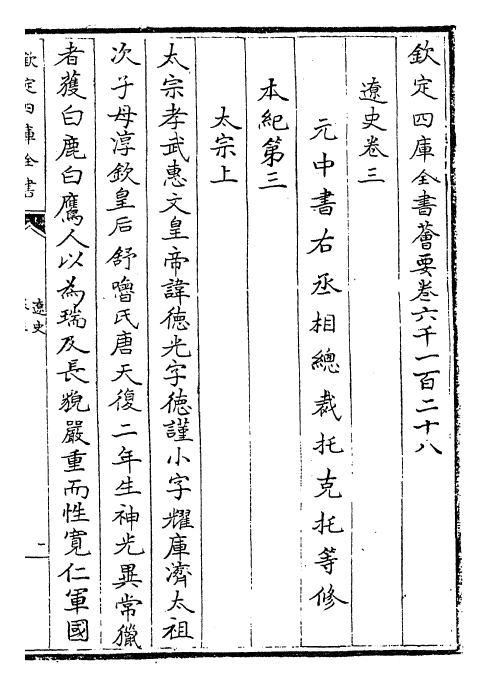 欽定四庫全書薈要卷六千一百二十八
遼史卷三
元中書右丞相總裁托克托等修
本紀第三
太宗上
太宗孝武惠文皇帝諱德光字德謹小字耀庫濟太祖
次子母淳欽皇后舒嚕氏唐天復二年生神光異常獵
者獲白鹿白鷹人以為瑞及長貌嚴重而性寬仁軍國
欽定四庫全書
遼史
一